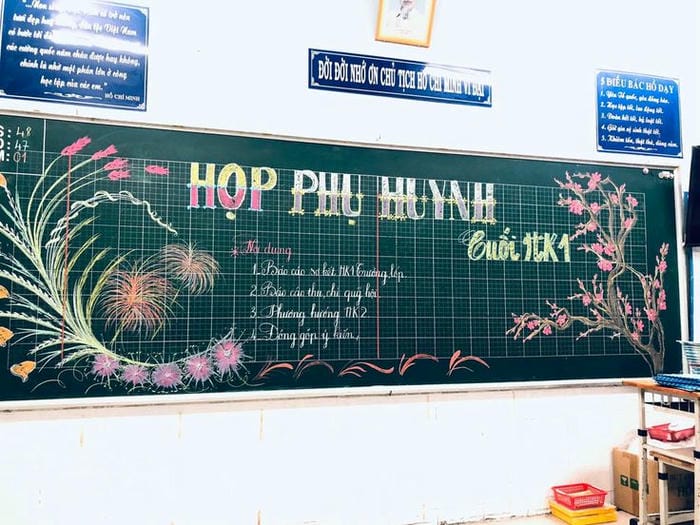 tươi đẹp hay không, dân tộc Việt Nam
các cường quốc năm châu được hay không,
chính là nhờ một phần lớn ở công
học tập của các em..."
HỒ CHÍ MINH
ĐỜI ĐỜI NHỚ ƠN CHỦ TỊCH HỒ CHÍ MINH VĨ ĐẠI
5 ĐIỀU BÁC HỒ DẠY
1. Yêu Tổ quốc, yêu đồng bào.
2. Học tập tốt, lao động tốt.
3. Đoàn kết tốt, kỷ luật tốt.
4. Giữ gìn vệ sinh thật tốt.
5. Khiêm tốn, thật thà, dũng cảm.
S: 48
Đ: 47
M: 01
HỌP PHỤ HUYNH
Cuối HK1
* Nội dung
1. Báo cáo sơ kết HK1 Trường, lớp.
2. Báo cáo thu, chi quỹ hội.
3. Phương hướng HK2.
4. Đóng góp ý kiến.